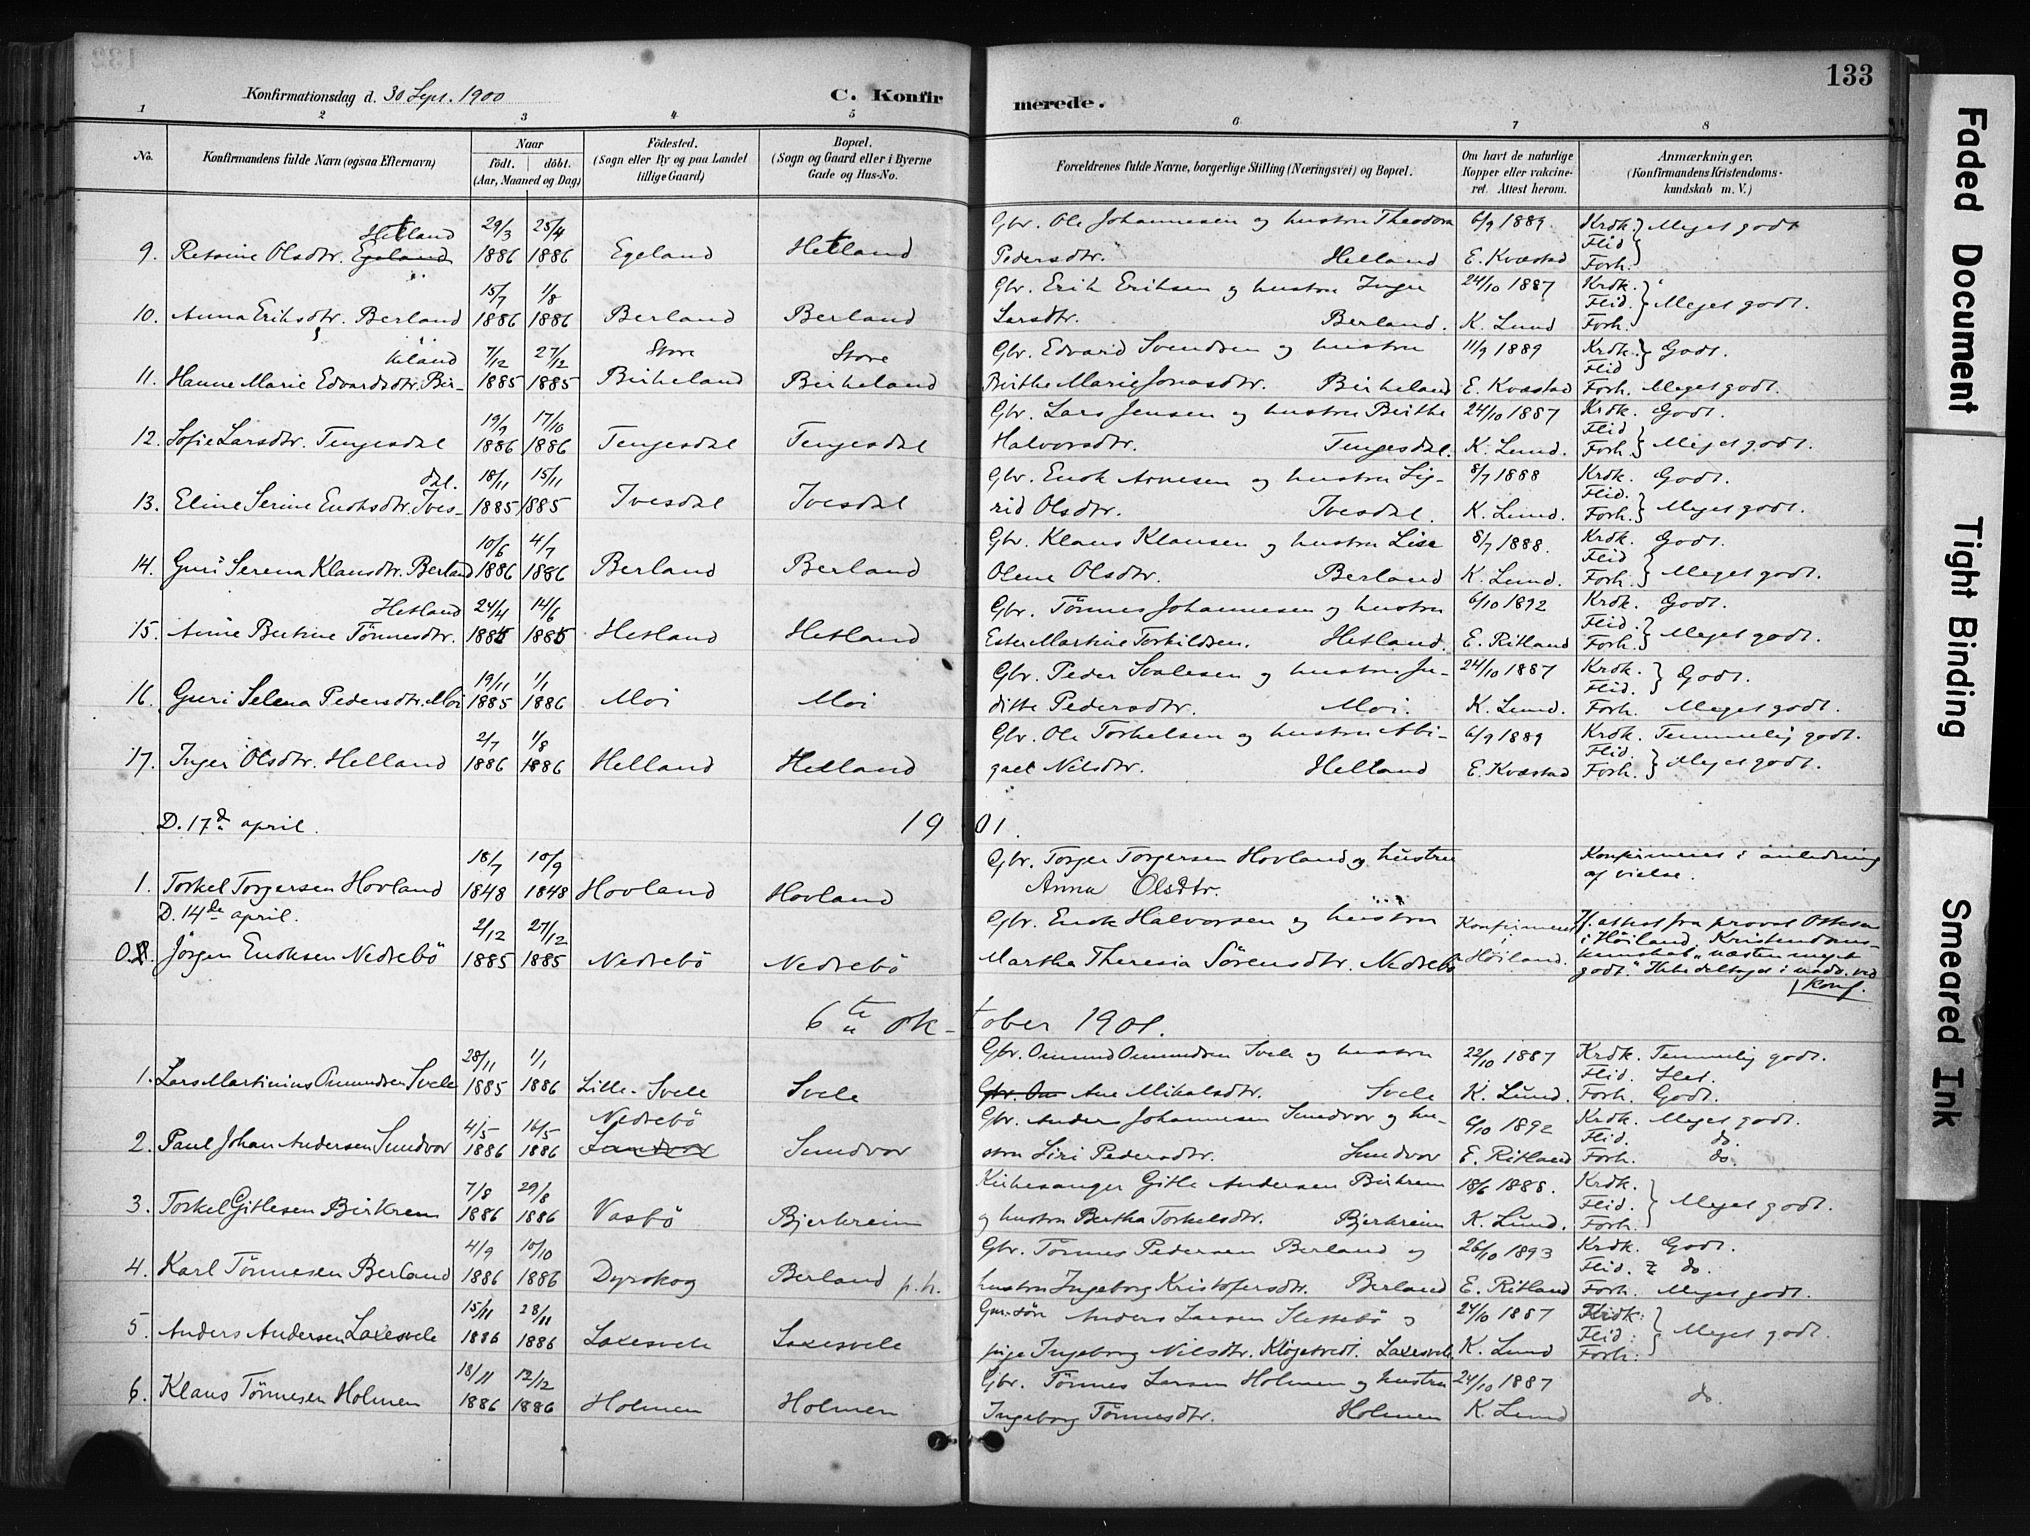 133
Konfirmationsdag d. 30 Sept. 1900
C. Konfirmerede.
1 2 3 4 5 6 7 8
No.
Konfirmandens fulde Navn (ogsaa Efternavn)
Naar
födt. döbt.
(Aar, Maaned og Dag)
Födested.
(Sogn eller By og paa Landet
tillige Gaard)
Bopæl.
(Sogn og Gaard eller i Byerne
Gade og Hus-No.
Forældrenes fulde Navne, borgerlige Stilling (Næringsvei) og Bopæl.
Om havt de naturlige
Kopper eller vakcine-
ret. Attest herom.
Anmærkninger.
(Konfirmandens Kristendoms-
kundskab m. V.)
Hetland 29/3 25/4 Gbr. Ole Johannesen og hustru Theodora 6/9 1889 Krdk. Flid } Meget godt
9. Olsdtr. Egeland 1886 1886 Egeland Hetland Pedersdtr. Helland E. Kvæstad Forh.
15/7 1/8 Gbr. Erik Eriksen og hustru Inger 24/10 1887 Krdk. Flid. } Meget godt.
10. Anna Eriksdtr. Berland 1886 1886 Berland Berland Larsdtr. Berland. K. Lund Forh.
keland 7/12 27/12 Store Store Gbr. Edvard Svendsen og hustru 11/9 1889 Krdk. } Godt. Flid
11. Hanne Marie Edvardsdtr. Bir- 1885 1885 Birkeland Birkeland Birthe Marie Jonasdtr. Birkeland E. Kvæstad Forh. Meget godt.
19/9 17/10 Gbr. Lars Jensen og hustru Birthe 24/10 1887 Krdk. Godt. Flid
12. Sofie Larsdtr. Tengesdal 1886 1886 Tengesdal Tengesdal Halvorsdtr. Tengesdal. K. Lund. Forh. } Meget godt.
dal. 18/11 15/11 Gbr. Enok Arnesen og hustru Sig- 8/7 1888 Krdk. Godt. Flid.
13. Eline Serine Enoksdtr. Ives- 1885 1885 Ivesdal Ivesdal rid Olsdtr. Ivesdal. K. Lund. Forh. } Meget godt.
10/6 4/7 Gbr. Klaus Klausen og hustru Lise 8/7 1888. Krdk. Godt. Flid
14. Guri Serena Klausdtr. Berland 1886 1886 Berland Berland Olene Olsdtr. Berland K. Lund. Forh. } Meget godt.
Hetland 24/4 14/6 Gbr. Tönnes Johannesen og hustru 6/10 1892 Krdk. Godt. Flid.
15. Anne Bertine Tönnesdtr. 1885 1885 Hetland Hetland Ester Martine Torkildsen. Hetland. E. Ritland Forh. } Meget godt.
19/11 1/1 Gbr. Peder Svalesen og hustru Ju- 24/10 1887 Krdk. Flid. } Godt.
16. Guri Selena Pedersdtr. Moi 1885 1886 Moi Moi ditte Pedersdtr. Moi. K. Lund. Forh. Meget godt.
2/7 1/8 Gbr. Ole Torkelsen og hustru Abi- 6/9 1889 Krdk. Temmelig godt. Flid.
17. Inger Olsdtr. Helland 1886 1886 Helland Helland gael Nilsdtr. Helland E. Kvæstad Forh. } Meget godt.
D. 17de april. 1901.
18/7 10/9 Gbr. Torger Torgersen Hovland og hustru Konfirmeres i anledning
1. Torkel Torgersen Hovland 1848 1848 Hovland Hovland Anna Olsdtr. af vielse.
D. 14de april. 2/12 27/12 Gbr. Enok Halvorsen og hustru Konfirmeret i Høiland. If. attest fra provst Ottesen
i Høiland, Kristendoms-
Jörgen Enoksen Nedrebö 1885 1885 Nedrebö Nedrebö Martha Theresia Sörensdtr. Nedrebö kunskab "næsten meget
godt." Ikke deltaget i nadv. ved
konf.
6te oktober 1901.
28/11 1/1 Gbr. Ommund Ommundsen Svele og hustru 22/10 1887 Krdk. Temmelig godt. Flid.
1. Lars Martinius Ommundsen Svele 1885 1886 Lille-Svele Svele Ane Mikalsdtr. Svele K. Lund. Forh. Godt.
4/5 16/5 Nedrebö Gbr. Anders Johannesen Sundvor og hu- 6/10 1892 Krdk. Meget godt. Flid. do.
2. Paul Johan Andersen Sundvor 1886 1886 Sundvor Sundvor stru Siri Pedersdtr. Sundvor E. Ritland Forh. do.
7/8 29/8 Kirkesanger Gitle Andersen Birkrem 18/6 1888. Krdk. Flid. } Meget godt.
3. Torkel Gitlesen Birkrem 1886 1886 Vasbö Bjerkreim og hustru Bertha Torkelsdtr. Bjerkreim K. Lund. Forh.
4/9 10/10 Gbr. Tönnes Pedersen Berland og 26/10 1893 Krdk. Godt. Flid. do.
4. Karl Tönnesen Berland 1886 1886 Dyrskog Berland p.h. hustru Ingeborg Kristofersdtr. Berland E. Ritland Forh. Meget godt.
15/11 28/11 Anders Larsen Slettebö og 24/10 1887 Flid: } Meget godt.
5. Anders Andersen Laxesvele 1886 1886 Laxesvele Laxesvele pige Ingeborg Nilsdtr. Kløgetvedt. Laxesvele. K. Lund Forh:
18/11 12/12 Gbr. Tönnes Larsen Holmen og hustru 24/10 1887 do.
6. Klaus Tönnesen Holmen 1886 1886 Holmen Holmen Ingeborg Tönnesdtr. Holmen K. Lund
Faded Document
Tight Binding
Smeared Ink